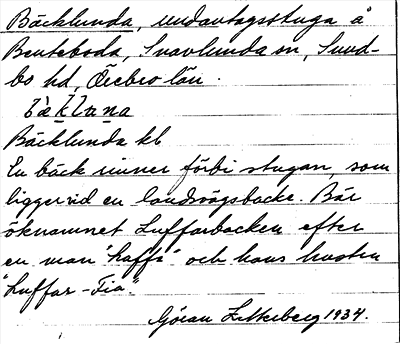 Bäcklunda, undantagsstuga å
Benteboda, Svavlunda sn, Sund-
bo hd, Örebro län.
bäklana
Bäcklunda kl
En bäck rinner förbi stugan, som
ligger vid en landsvägsbacke. Bär
öknamnet Luffarbacken efter
en man "Luffä" och hans hustru
"Luffar-Fia".
Göran 1934.